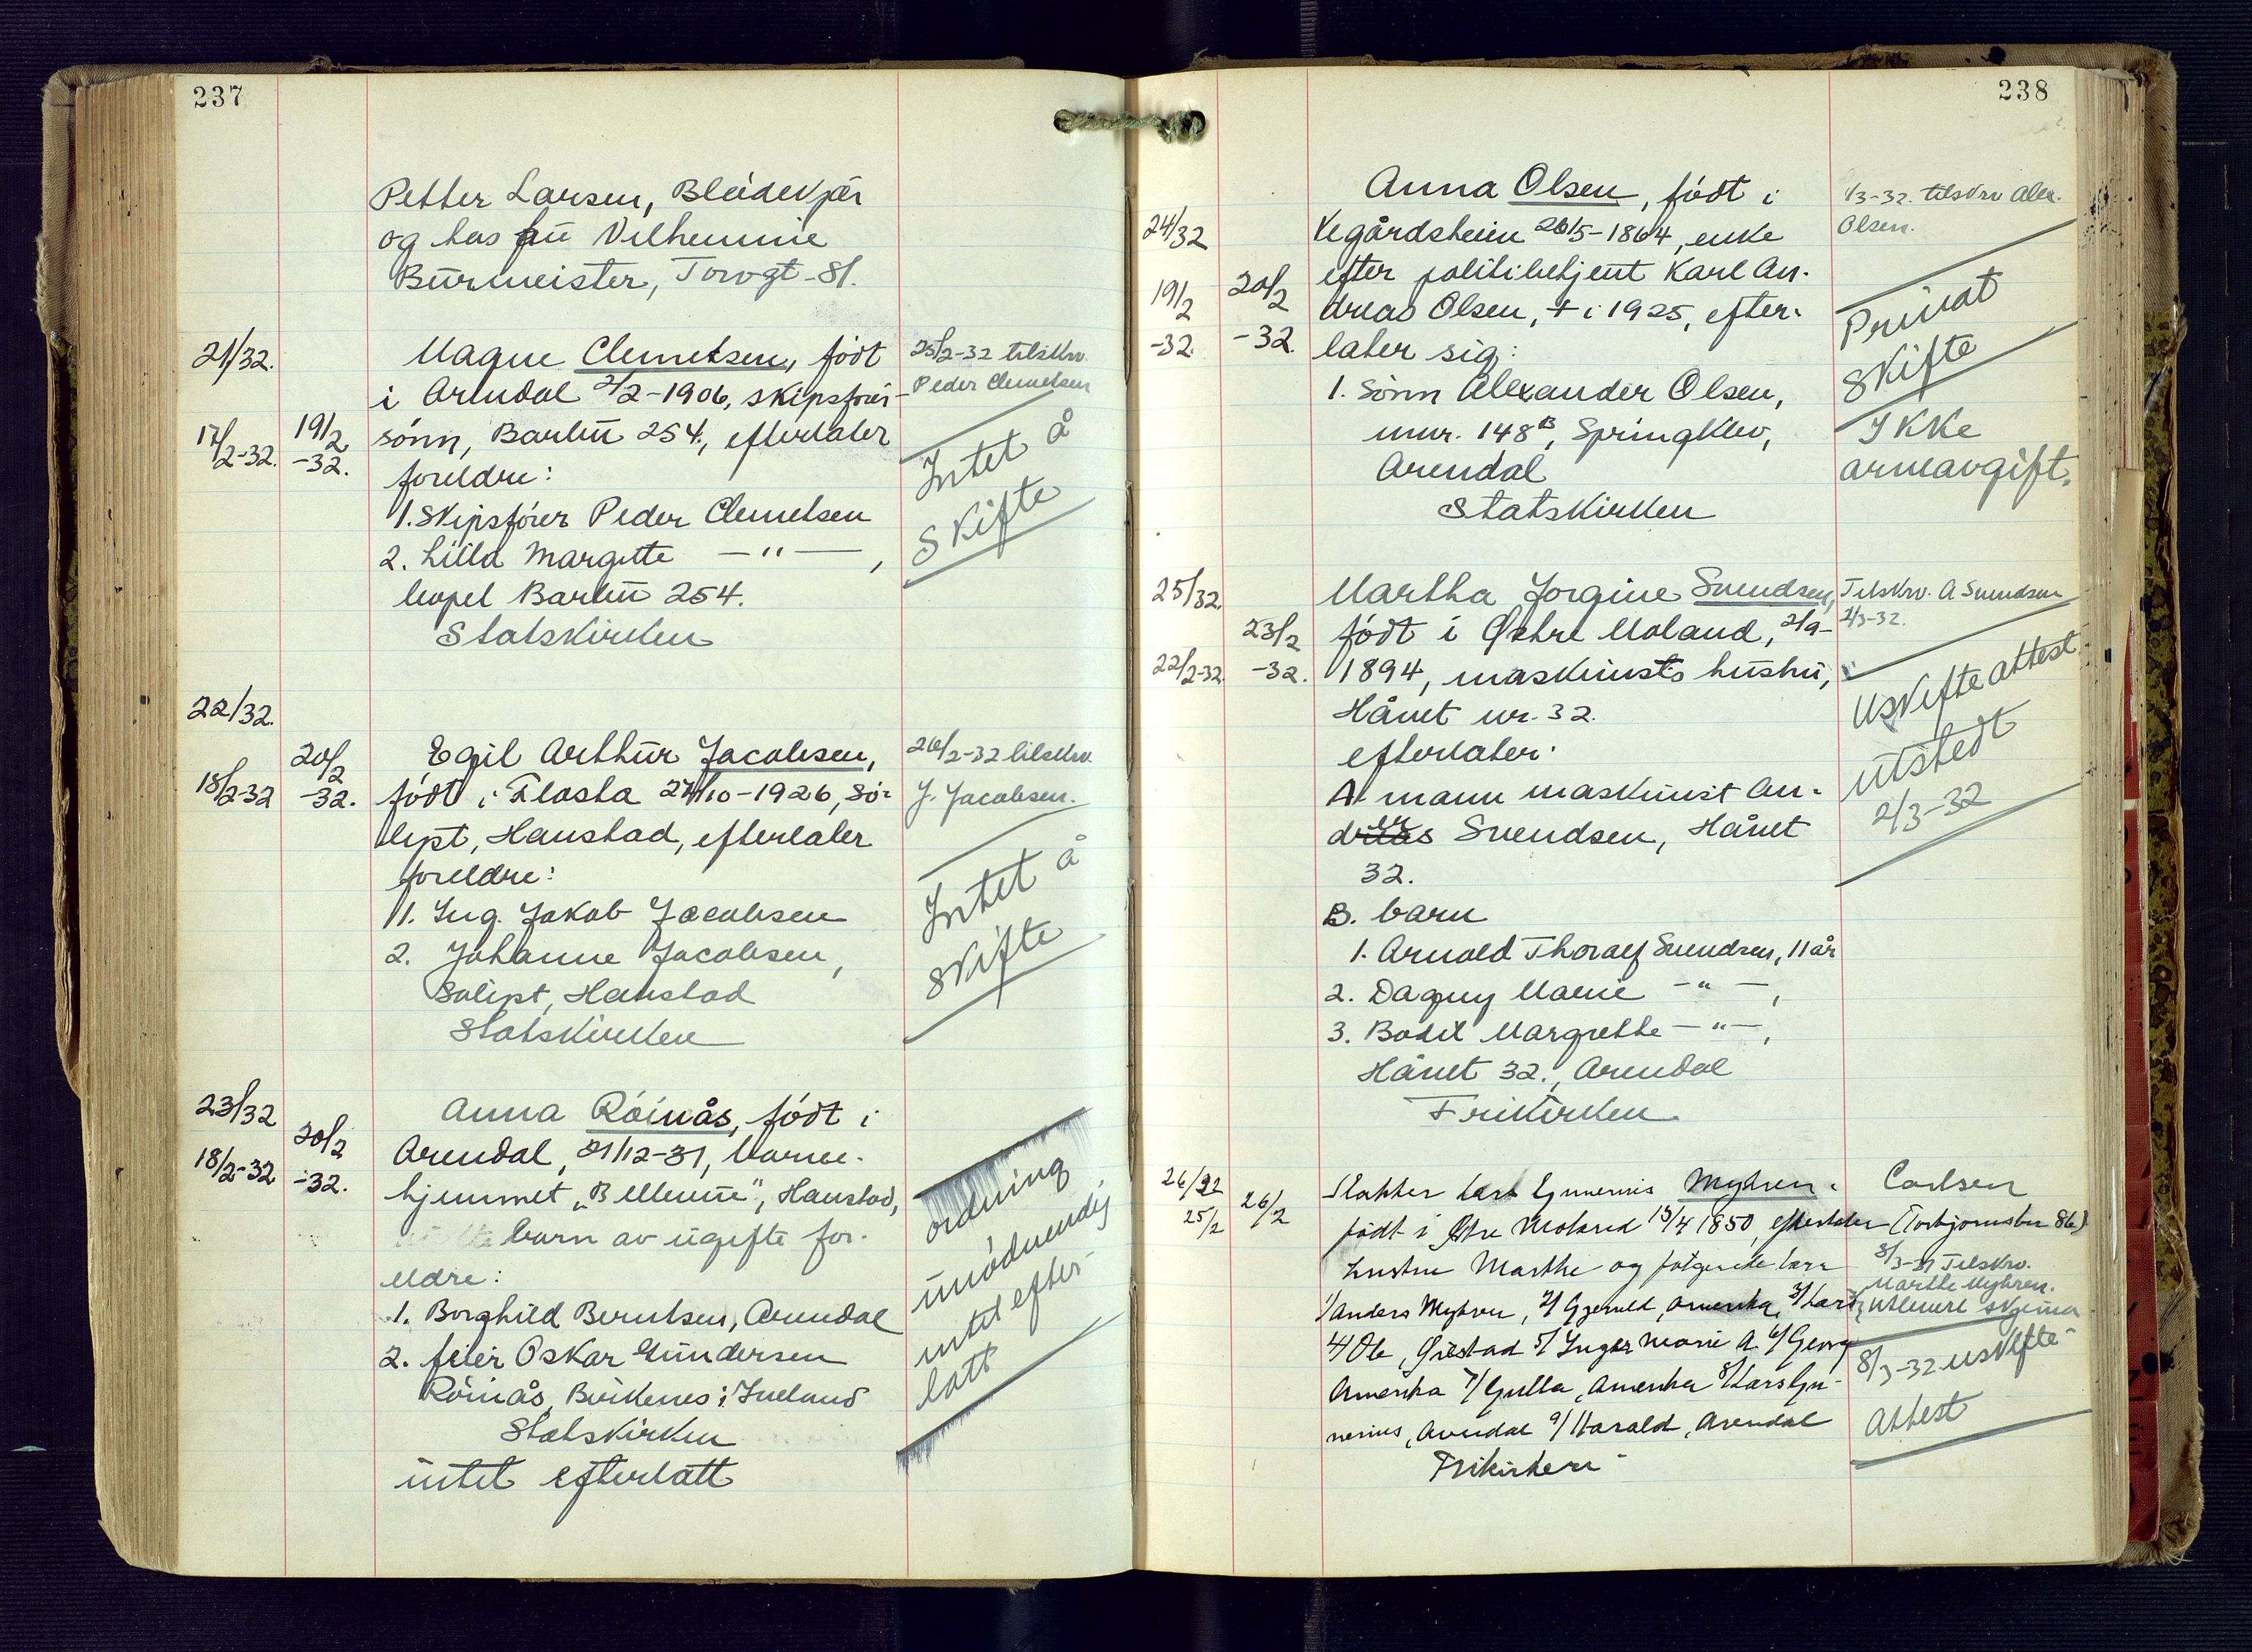 237
Petter Larsen, Blödekjær
og hos frü Vilhemine
Bürmeister, Torvgt. 81.
21/32.
Magne Clemetsen, född
i Arendal 2/2-1906, skipsförer-
sönn, Barbü 254, efterlater
foreldre:
1. Skipsförer Peder Clemetsen
2. Lilla Margitte —"— ,
bopel Barbü 254.
Statskirken
17/2-32.
19/2
-32.
25/2-32 tilskrv.
Peder Clemetsen
Intet å
skifte
22/32.
18/2-32
20/2
-32.
Egil Arthür Jacobsen,
född i Flosta 27/10-1926, So-
lyst, Haustad, efterlater
foreldre:
1. Ing. Jakob Jacobsen
2. Johanne Jacobsen,
Solyst, Haustad
Statskirken
26/2-32 tilskrv.
J. Jacobsen.
Intet å
skifte
23/32
18/2-32
20/2
-32.
Anna Röinås, född i
Arendal, 31/12-31, Barne-
hjemmet „Bellevue", Haustad,
barn av ugifte for-
eldre:
1. Borghild Berntsen, Arendal
2. feier Oskar Gundersen
Röinås, Birkenes i Iveland
Statskirken
intet efterlatt
ordning
ünödvendig
intet efter
latt
238
24/32
19/2
-32.
20/2
-32.
Anna Olsen, född i
Vegårdsheim 26/5-1864, enke
efter politibetjent Karl An-
dreas Olsen, + i 1925, efter-
later sig:
1. Sönn Alexander Olsen,
mur. 148B, Springklev,
Arendal
Statskirken
1/3-32. tilskrv Alex.
Olsen.
Privat
skifte
Ikke
arveavgift.
25/32.
22/2-32.
23/2
-32.
Martha Jorgine Svendsen,
född i Østre Moland, 2/9-
1894, maskinists hüstrü,
Hånet nr. 32.
efterlater:
A. mann maskinist An-
ders Svendsen, Hånet
32.
B. barn
1. Arnold Thoralf Svendsen, 11 år
2. Dagny Marie —"—,
3. Bodil Margrethe —"—,
Hånet 32., Arendal
Frikirken.
Tilskrv. A Svendsen
2/3-32.
Uskifteattest
utstedt
2/3-32
26/32
25/2
26/2
Slakter Lars Gunerius Myhren.
født i Østre Moland 15/4 1850, efterlater
hustru Marthe og følgende barn
1/ Anders Myhren, 2/ Gjerulf, Amerika, 3/ Lars
4/ Ole, Gjestad 5/ Inger Marie A. 6/ Georg
Amerika 7/ Gulla, Amerika 8/ Lars Gu-
nerius, Arendal 9/ Harald, Arendal
Frikirken
Carlsen
(Torbjørnsbu 86)
8/3-32 Tilskrv.
Marthe Myhren.
Utlevert skjema
8/3-32 uskifte-
attest